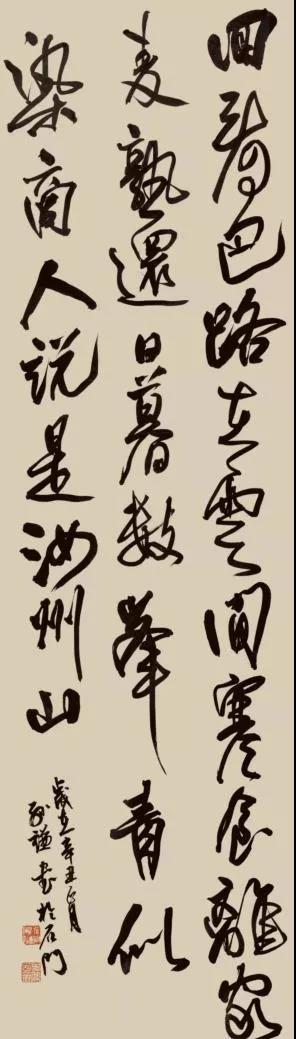 回看巴路在雲間寒食離家
麥熟還日暮數峯青似
染商人說是汝州山
歲在辛丑月
謙書於石門